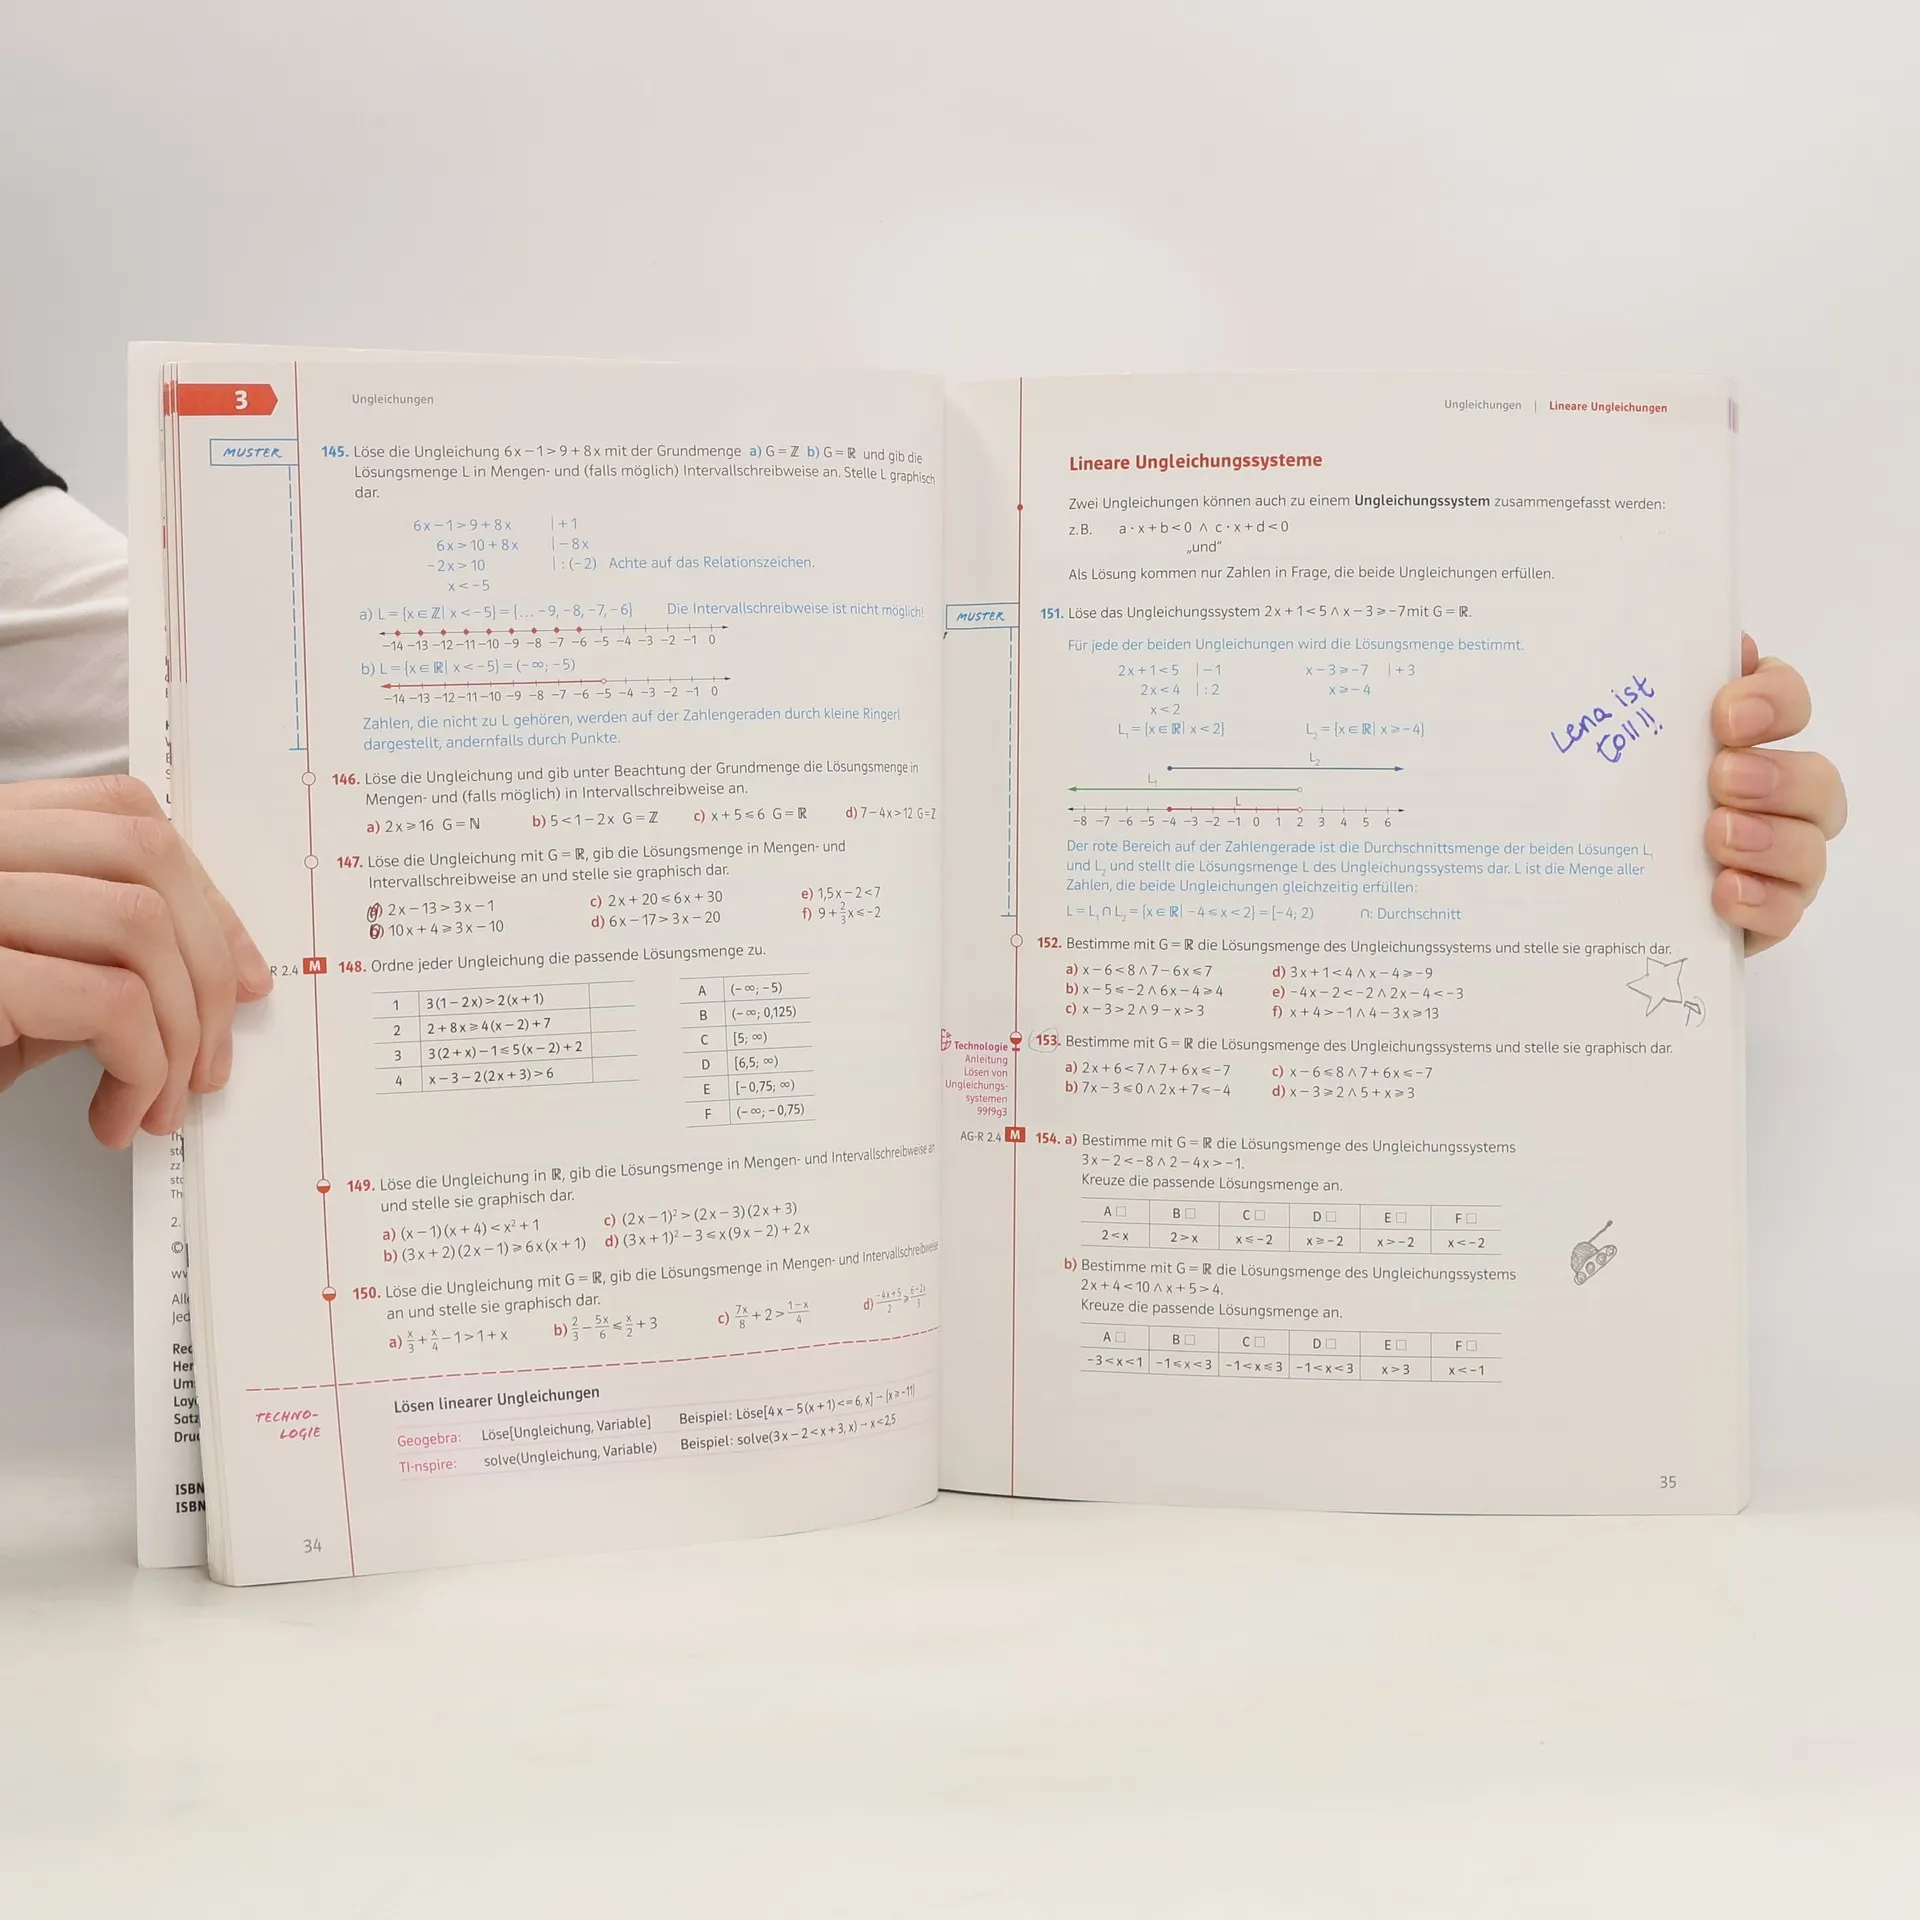 3
Ungleichungen
MUSTER
145. Löse die Ungleichung 6x – 1 > 9 + 8x mit der Grundmenge a) G = ℤ b) G = ℝ und gib die
Lösungsmenge L in Mengen- und (falls möglich) Intervallschreibweise an. Stelle L graphisch
dar.
6x – 1 > 9 + 8x | + 1
6x > 10 + 8x | – 8x
–2x > 10 | : (–2) Achte auf das Relationszeichen.
x < –5
a) L = {x ∈ ℤ| x < –5} = {... –9, –8, –7, –6} Die Intervallschreibweise ist nicht möglich!
–14 –13 –12 –11 –10 –9 –8 –7 –6 –5 –4 –3 –2 –1 0
b) L = {x ∈ ℝ| x < –5} = (–∞; –5)
–14 –13 –12 –11 –10 –9 –8 –7 –6 –5 –4 –3 –2 –1 0
Zahlen, die nicht zu L gehören, werden auf der Zahlengeraden durch kleine Ringerl
dargestellt, andernfalls durch Punkte.
146. Löse die Ungleichung und gib unter Beachtung der Grundmenge die Lösungsmenge in
Mengen- und (falls möglich) in Intervallschreibweise an.
a) 2x ≥ 16 G = ℕ b) 5 < 1 – 2x G = ℤ c) x + 5 ≤ 6 G = ℝ d) 7 – 4x > 12 G = ℤ
147. Löse die Ungleichung mit G = ℝ, gib die Lösungsmenge in Mengen- und
Intervallschreibweise an und stelle sie graphisch dar.
a) 2x – 13 > 3x – 1 c) 2x + 20 ≤ 6x + 30 e) 1,5x – 2 < 7
b) 10x + 4 ≥ 3x – 10 d) 6x – 17 > 3x – 20 f) 9 + 2/3 x ≤ –2
R 2.4 M 148. Ordne jeder Ungleichung die passende Lösungsmenge zu.
1 3(1 – 2x) > 2(x + 1)
2 2 + 8x ≥ 4(x – 2) + 7
3 3(2 + x) – 1 ≤ 5(x – 2) + 2
4 x – 3 – 2(2x + 3) > 6
A (–∞; –5)
B (–∞; 0,125)
C [5; ∞)
D [6,5; ∞)
E [–0,75; ∞)
F (–∞; –0,75)
149. Löse die Ungleichung in ℝ, gib die Lösungsmenge in Mengen- und Intervallschreibweise an
und stelle sie graphisch dar.
a) (x – 1)(x + 4) < x² + 1 c) (2x – 1)² > (2x – 3)(2x + 3)
b) (3x + 2)(2x – 1) ≥ 6x(x + 1) d) (3x + 1)² – 3 ≤ x(9x – 2) + 2x
150. Löse die Ungleichung mit G = ℝ, gib die Lösungsmenge in Mengen- und Intervallschreibweise
an und stelle sie graphisch dar.
a) x/3 + x/4 – 1 > 1 + x b) 2/3 – 5x/6 ≤ x/2 + 3 c) 7x/8 + 2 > 1–x/4 d) –4x+5/2 ≥
TECHNO-
LOGIE
Lösen linearer Ungleichungen
Geogebra: Löse[Ungleichung, Variable] Beispiel: Löse[4x – 5(x + 1) <= 6, x] – {x ≥ –11}
TI-nspire: solve(Ungleichung, Variable) Beispiel: solve(3x – 2 < x + 3, x) – x < 2,5
34
Th
sto
zz
sto
Th
2.
©
Alle
Jed
Red
Her
Um
Layo
Satz
Druc
ISBN
ISBN
Ungleichungen | Lineare Ungleichungen
Lineare Ungleichungssysteme
Zwei Ungleichungen können auch zu einem Ungleichungssystem zusammengefasst werden:
z.B. a · x + b < 0 ∧ c · x + d < 0
„und“
Als Lösung kommen nur Zahlen in Frage, die beide Ungleichungen erfüllen.
MUSTER
151. Löse das Ungleichungssystem 2x + 1 < 5 ∧ x – 3 ≥ –7 mit G = ℝ.
Für jede der beiden Ungleichungen wird die Lösungsmenge bestimmt.
2x + 1 < 5 | – 1 x – 3 ≥ –7 | + 3
2x < 4 | : 2 x ≥ – 4
x < 2
L₁ = {x ∈ ℝ| x < 2} L₂ = {x ∈ ℝ| x ≥ –4}
Lena ist
toll!!
L₂
L₁
L
–8 –7 –6 –5 –4 –3 –2 –1 0 1 2 3 4 5 6
Der rote Bereich auf der Zahlengerade ist die Durchschnittsmenge der beiden Lösungen L₁
und L₂ und stellt die Lösungsmenge L des Ungleichungssystems dar. L ist die Menge aller
Zahlen, die beide Ungleichungen gleichzeitig erfüllen:
L = L₁ ∩ L₂ = {x ∈ ℝ| –4 ≤ x < 2} = [–4; 2) ∩: Durchschnitt
152. Bestimme mit G = ℝ die Lösungsmenge des Ungleichungssystems und stelle sie graphisch dar.
a) x – 6 < 8 ∧ 7 – 6x ≤ 7 d) 3x + 1 < 4 ∧ x – 4 ≥ –9
b) x – 5 ≤ –2 ∧ 6x – 4 ≥ 4 e) –4x – 2 < –2 ∧ 2x – 4 < –3
c) x – 3 > 2 ∧ 9 – x > 3 f) x + 4 > –1 ∧ 4 – 3x ≥ 13
Technologie
Anleitung
Lösen von
Ungleichungs-
systemen
99f9g3
153. Bestimme mit G = ℝ die Lösungsmenge des Ungleichungssystems und stelle sie graphisch dar.
a) 2x + 6 < 7 ∧ 7 + 6x ≤ –7 c) x – 6 ≤ 8 ∧ 7 + 6x ≤ –7
b) 7x – 3 ≤ 0 ∧ 2x + 7 ≤ –4 d) x – 3 ≥ 2 ∧ 5 + x ≥ 3
AG-R 2.4 M 154. a) Bestimme mit G = ℝ die Lösungsmenge des Ungleichungssystems
3x – 2 < –8 ∧ 2 – 4x > –1.
Kreuze die passende Lösungsmenge an.
A □ B □ C □ D □ E □ F □
2 < x 2 > x x ≤ –2 x ≥ –2 x > –2 x < –2
b) Bestimme mit G = ℝ die Lösungsmenge des Ungleichungssystems
2x + 4 < 10 ∧ x + 5 > 4.
Kreuze die passende Lösungsmenge an.
A □ B □ C □ D □ E □ F □
–3 < x < 1 –1 ≤ x < 3 –1 < x ≤ 3 –1 < x < 3 x > 3 x < –1
35